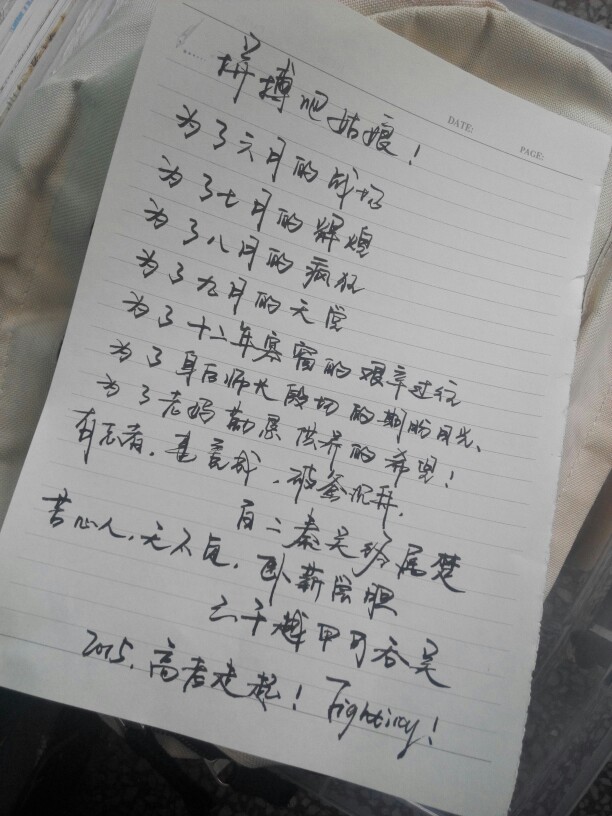 拼搏吧姑娘!
DATE: PAGE:
为了六月的战场
为了七月的辉煌
为了八月的疯狂
为了九月的天堂
为了十二年寒窗的艰辛过往
为了身后师长殷切的期盼目光、
为了老妈勤恳供养的希望!
有志者,事竟成,破釜沉舟,
百二秦关终属楚
苦心人,天不负,卧薪尝胆
三千越甲可吞吴
2015.高考走起! Fighting!